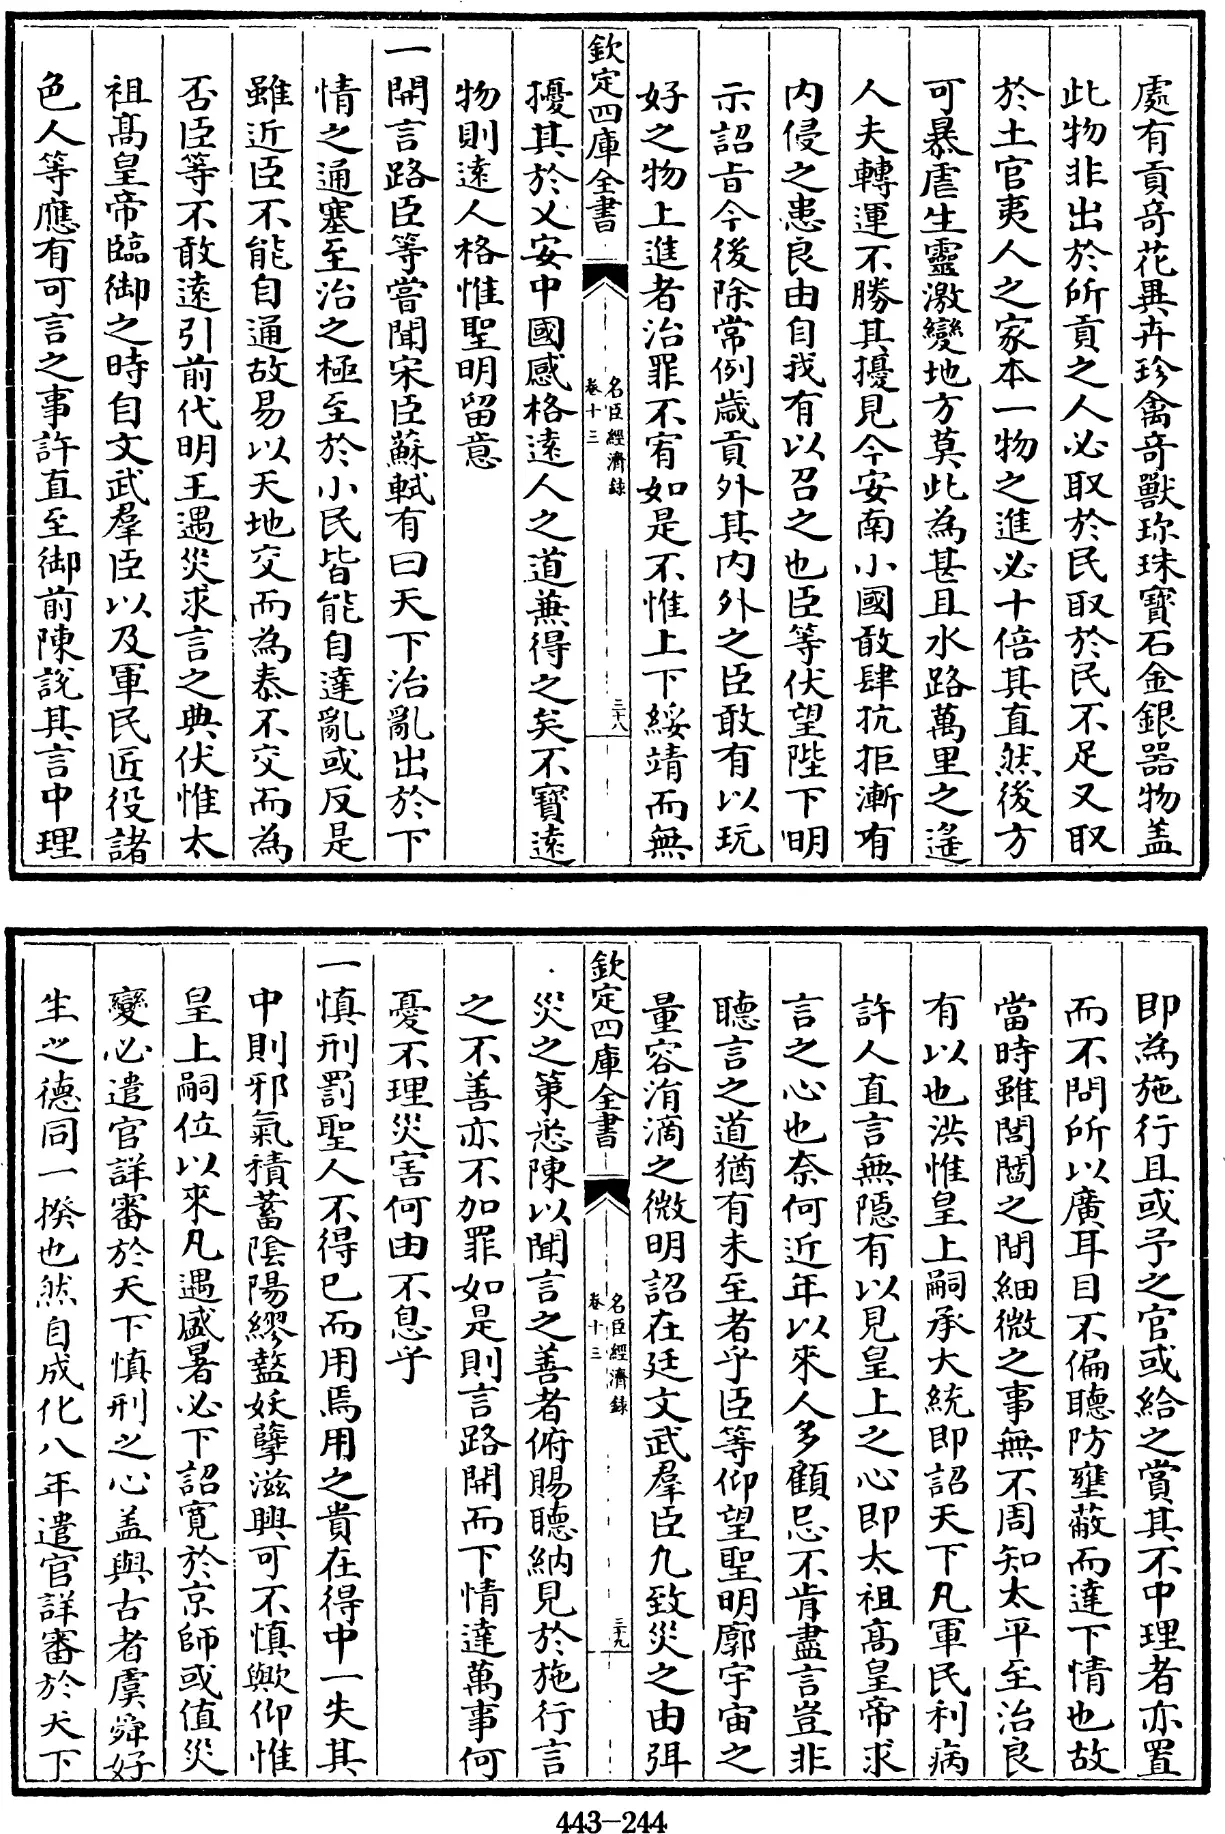 處有貢奇花異卉珍禽奇獸珎珠寳石金銀器物盖
此物非出於所貢之人必取於民取於民不足又取
於土官夷人之家本一物之進必十倍其直然後方
可暴虐生靈激變地方莫此為甚且水路萬里之遙
人夫轉運不勝其擾見今安南小國敢肆抗拒漸有
内侵之患良由自我有以召之也臣等伏望陛下明
示詔㫖今後除常例歲貢外其内外之臣敢有以玩
好之物上進者治罪不宥如是不惟上下綏靖而無
欽定四庫全書
名臣經濟錄
卷十三
三十八
擾其於乂安中國感格逺人之道兼得之矣不寳逺
物則逺人格惟聖明留意
一開言路臣等嘗聞宋臣蘇軾有曰天下治亂出於下
情之通塞至治之極至於小民皆能自達亂或反是
雖近臣不能自通故易以天地交而為泰不交而為
否臣等不敢逺引前代明王遇災求言之典伏惟太
祖髙皇帝臨御之時自文武羣臣以及軍民匠役諸
色人等應有可言之事許直至御前陳說其言中理
即為施行且或予之官或給之賞其不中理者亦置
而不問所以廣耳目不偏聽防壅蔽而達下情也故
當時雖閭閻之間細微之事無不周知太平至治良
有以也洪惟皇上嗣承大統即詔天下凡軍民利病
許人直言無隠有以見皇上之心即太祖髙皇帝求
言之心也奈何近年以來人多顧忌不肯盡言豈非
聽言之道猶有未至者乎臣等仰望聖明廓宇宙之
量容涓滴之微明詔在廷文武羣臣凡致災之由弭
欽定四庫全書
名臣經濟錄
卷十三
三十九
災之䇿悉陳以聞言之善者俯賜聽納見於施行言
之不善亦不加罪如是則言路開而下情達萬事何
憂不理災害何由不息乎
一慎刑罰聖人不得已而用焉用之貴在得中一失其
中則邪氣積蓄陰陽繆盭妖孽滋興可不慎歟仰惟
皇上嗣位以來凡遇盛暑必下詔寛於京師或值災
變必遣官詳審於天下慎刑之心盖與古者虞舜好
生之德同一揆也然自成化八年遣官詳審於天下
443-244